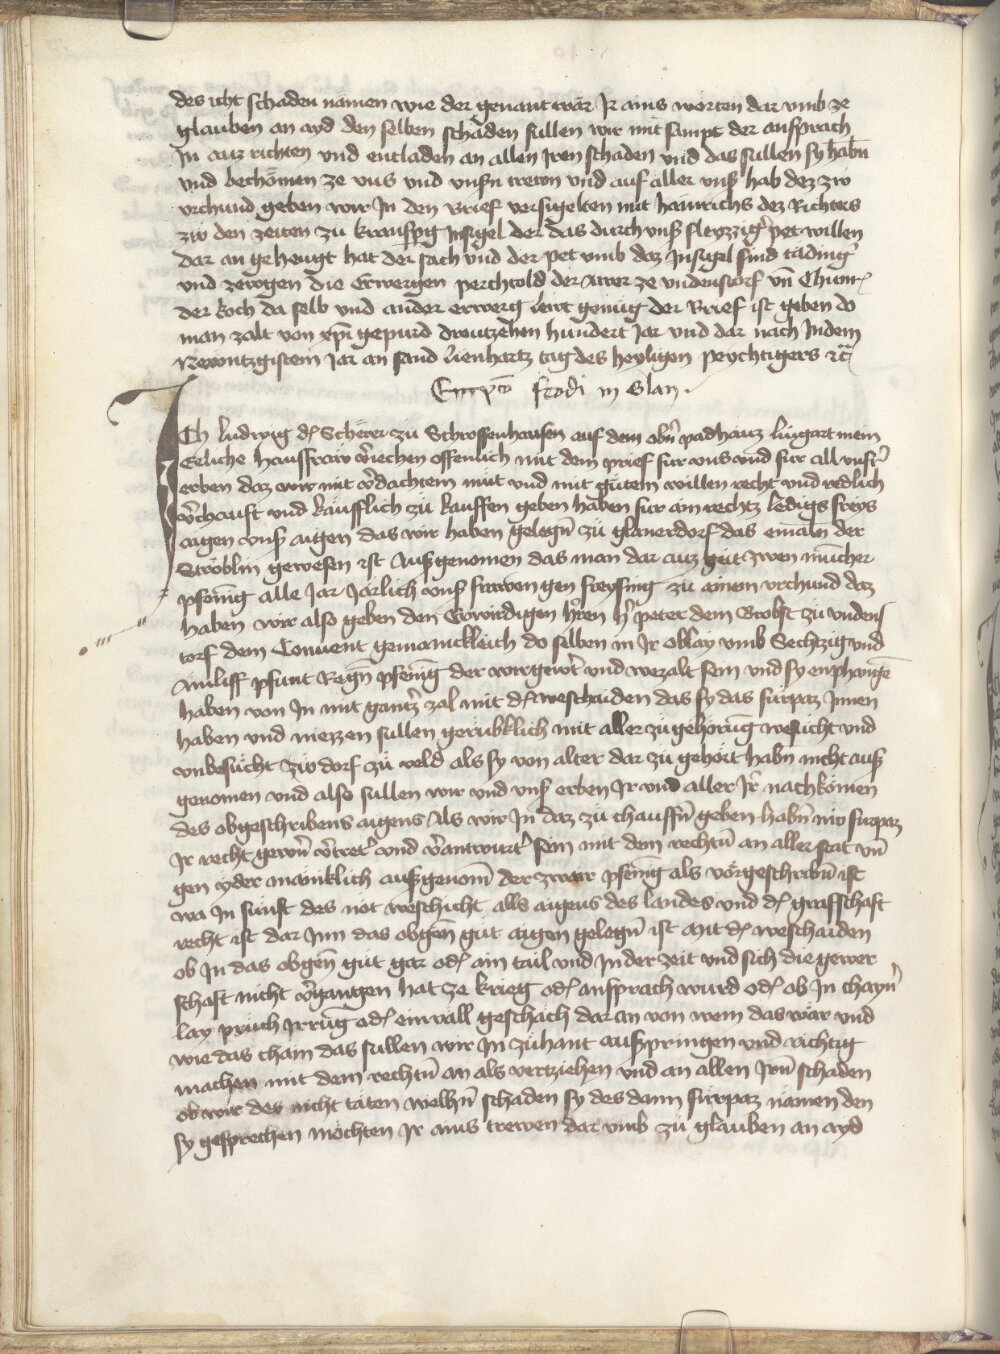 des icht schaden nämen wie der genant wär Jr ains worten dar vmb ze
glauben an ayd den selben schaden sullen wir mit sampt der ansprach
Jn auz richten vnd entladen an allen Jren schaden vnd das sullen sy habn̄
vnd bechömen ze vns vnd vnsn̄ trewn vnd auf aller vnsr̄ hab dez zw
vrchund geben wir Jn den Brief versigelten mit hainrichs dez Richters
zw den zeiten zu Insigel der das durch vnsr̄ fleyzzigr̄ pet willen
dar an gehengt hat der sach vnd der pet vmb daz Jnsigel sind tädinḡ
vnd zewgen die Erwergen perchtold der Mair ze vndenstorf vn̄ Chunr̄
der koch da selb vnd ander erwerg lewt genüg der Brief ist geben do
man zalt von xp̄i gepurd dreutzehen hundert Jar vnd dar nach Jndem
Newntzgistem Jar an sand lienhartz tag des heyligen peychtigers ꝛc̄
in Glan .
Ich ludwig dˢ Scherer zu Schroffenhausen auf dem obn̄ padhauz lüngart mein
Eeliche hausfraw v̄iechen offenlich mit dem prief für vns vnd für all vnsr̄
erben daz wir mit v̄dachtem müt vnd mit gütem willen recht vnd redlich
v̄chauft vnd käufflich zü kauffen geben haben für ain rechtz ledigs freys
aigen vnsr̄ aigen das wir haben gelegn̄ zü glanerdorf das emaln der
Ströblin gewesen ist Ausgenomen das man dar auz geit zwen münicher
pfening alle Jar Järlich vnsr̄ frawen gen freysing zu ainen vrchund daz
haben wir also geben den Erwirdigen hr̄ren hr̄ peter dem Brobst zü vndens
torf dem Conuent gemainckleich do selben in Jr oblay vmb Sechtzig vnd
Ainliff pfunt Regn̄ pfening der wir gewr̄t vnd wezalt sein vnd sy enphangē
haben von Jn mit gantzr̄ zal mit dˢ weschaiden das sy das fürpaz Jnnen
haben vnd niezzen sullen gerübklich mit aller zügehörung wesücht vnd
vnbesücht zw dorf zü veld als sy von alter dar zü gehört habn nicht auß
genomen vnd also sullen wir vnd vnsr̄ erben Jr vnd aller Jr̄ nachkömen
des obgeschribens aigens Als wir Jn daz zü chauffn̄ geben habn̄ nw fürpaz
Jr recht gewn̄ v̄tretr̄ vnd v̄antwurtr̄ sein mit dem rechtn̄ an aller stat vn̄
gen yder mänklich ausgenom̄ der zwair pfening als vorgeschribn̄ ist
wa Jn fünft des not weschicht alls aigens des landes vnd dˢ grafschaft
recht ist dar Jnn das obgen̄ güt aigen gelegn̄ ist Mit dˢ weschaiden
ob Jn das obgen̄ güt gar odˢ ain tail vnd Jn der zeit vnd sich die gewer
schaft nicht v̄gangen hat ze krieg odˢ ansprach wurd odˢ ob Jn chayn̄
lay prüch Jrrug odˢ einväll geschäch dar an von wem das wär vnd
wie das cham das sullen wir Jn zühant ausspringen vnd richtig
machen mit dem rechtn̄ an als vertziehen vnd an allen Jrn̄ schaden
ob wir des nicht täten welhn̄ schaden sy des dann fürpaz nämen den
sy gesprechen möchten Jr ains trewen dar vmb zü glauben an ayd